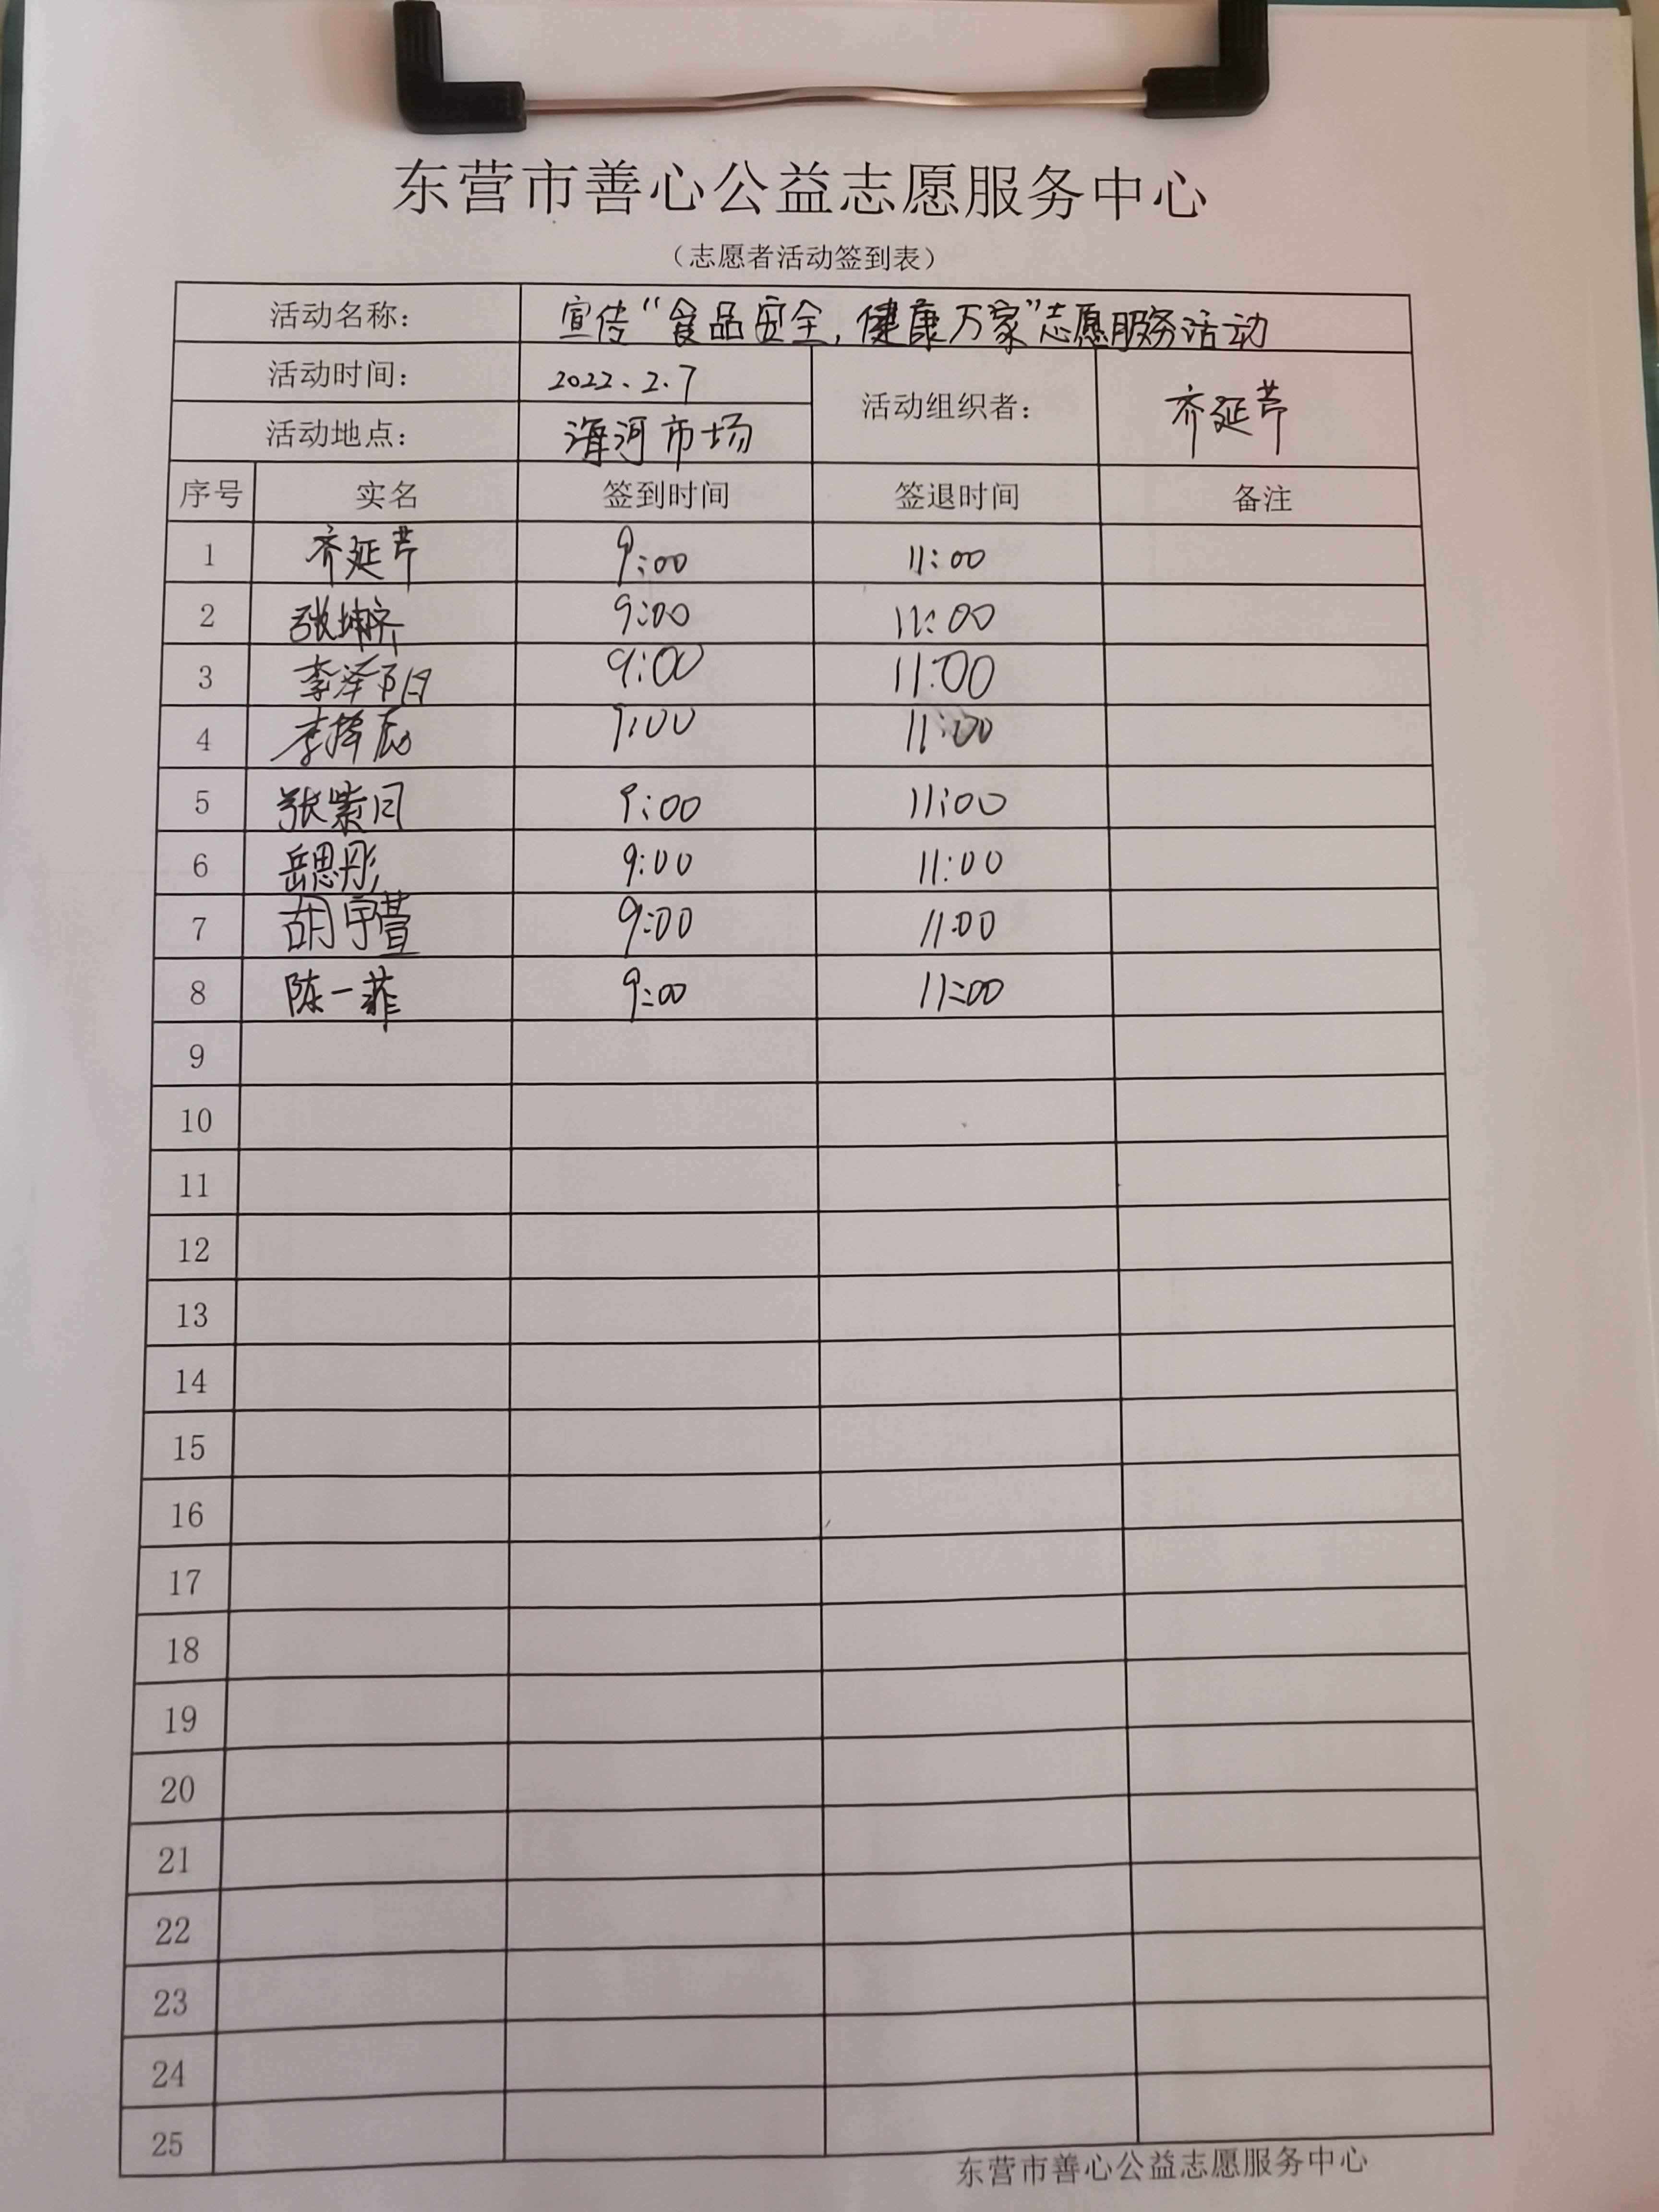 东营市善心公益志愿服务中心
（志愿者活动签到表）
活动名称： 宣传“食品安全，健康万家”志愿服务活动
活动时间： 2022.2.7
活动组织者： 齐延芹
活动地点： 海河市场
序号 实名 签到时间 签退时间 备注
1 齐延芹 9:00 11:00
2 张坤齐 9:00 11:00
3 李泽 9:00 11:00
4 李泽辰 9:00 11:00
5 张紫月 9:00 11:00
6 岳思彤 9:00 11:00
7 胡宇萱 9:00 11:00
8 陈一菲 9:00 11:00
9
10
11
12
13
14
15
16
17
18
19
20
21
22
23
24
25
东营市善心公益志愿服务中心